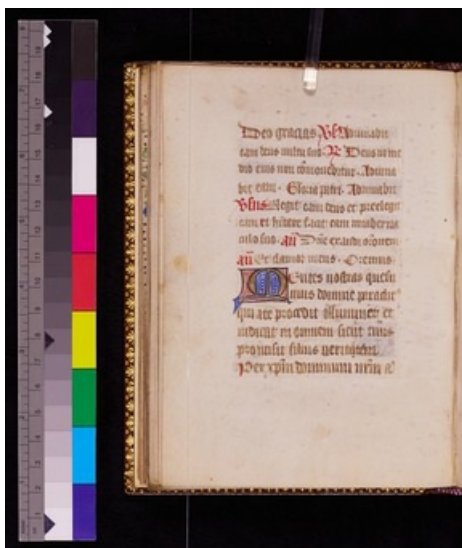 Deo gracias. Vs. Adiuvabit
eam deus vultu suo. R. Deus in me
dio eius non commovebitur. Adiuva
bit eam. Gloria patri. Adiuvabit
Vsus. Elegit eam deus et preelegit
eam et habitare facit eam in taberna
culo suo. añ Dñe exaudi oronem
añ Et clamor meus. Oremus
Mentes nostras quesu
mus domine paraclit
qui a te procedit illuminet et
inducat in omnem sicut tuus
promisit filius veritatem
Per xpm dominum nrm a